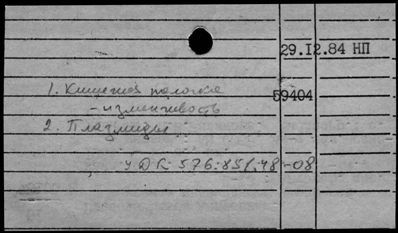 29.I2.84 НП
1. Кишечная палочка
59404
- изменчивость
2. Плазмиды
УДК 576.851.48-08